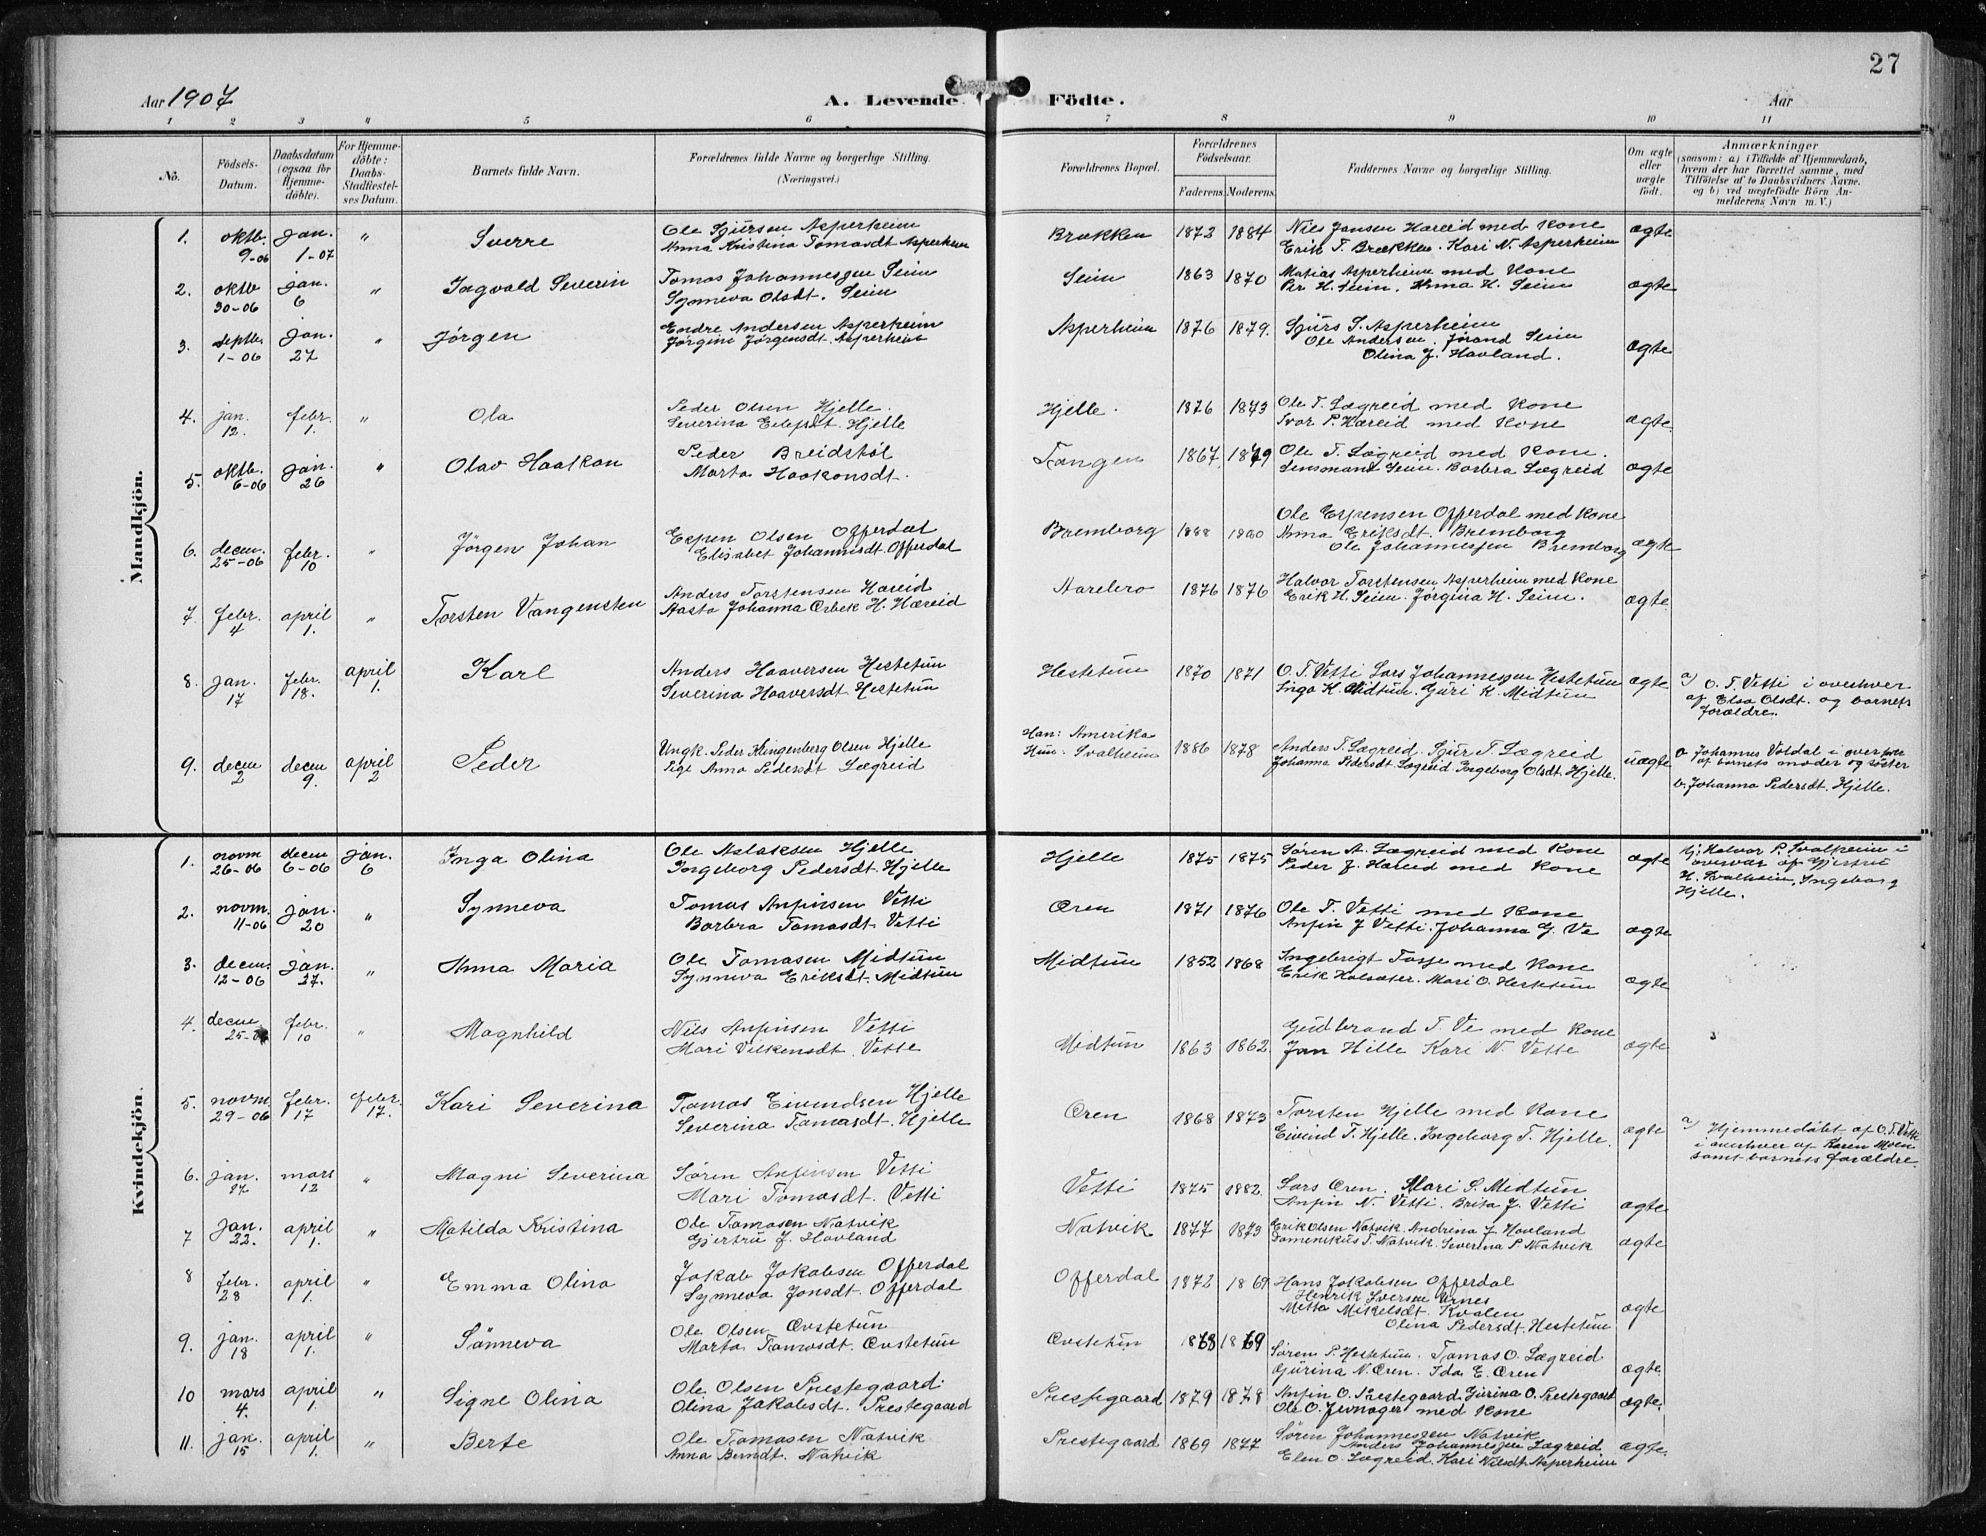 27
Aar 1907
A. Levende Födte.
Aar
1 2 3 4 5 6 7 8 9 10 11
No.
Födsels-
Datum.
Daabsdatum
(ogsaa for
Hjemme-
döbte).
For Hjemme-
döbte:
Daabs-
Stadfæstel-
ses Datum.
Barnets fulde Navn.
Forældrenes fulde Navne og borgerlige Stilling.
(Næringsvei.)
Forældrenes Bopæl.
Forældrenes
Födselsaar.
Faderens. Moderens.
Faddernes Navne og borgerlige Stilling.
Om ægte
eller
uægte
født.
Anmærkninger
(saasom: a) i Tilfælde af Hjemmedaab,
hvem der har forrettet samme, med
Tilføielse af to Daabsvidners Navne,
og b) ved uegtefödte Börn An-
melderens Navn m. V.)
Mandkjön.
1. oktb. 9-06 jan. 1-07 " Sverre Ole Sjursen Asperheim Brækken 1872 1884 Nils Jensen Hæreid med Kone ægte
Anna Kristina Tomasdt Asperheim Erik T. Brækken. Kari N. Asperheim
2. oktb 30-06 jan. 6 " Ingvald Severin Tomas Johannessen Seim Seim 1863 1870 Matias Asperheim med Kone ægte
Synneva Olsdt. Seim Per H. Seim. Anna H. Seim
3. septb. 1-06 jan. 27 " Jørgen Endre Andersen Asperheim Asperheim 1876 1879. Sjurs S. Asperheim ægte
Jørgine Jørgensdt. Asperheim Ole Andersen. Jorand Seim
Olina J. Hovland.
4. jan. 12. febr. 1. " Ola Peder Olsen Hjelle. Hjelle. 1876 1873 Ole T. Lægreid med Kone ægte
Severina Eilefsdt. Hjelle Ivar P. Hæreid med Kone
5. oktb. 6-06 jan. 26 " Olav Haakon Peder Breidstøl Tangen 1867 1879 Ole T. Lægreid med Kone. ægte
Marta Haakonsdt. Lensmand Seim. Barbra Lægreid
6. decem. 25-06 febr. 10 " Jørgen Johan Espen Olsen Offerdal Bremborg Ole Espensen Offerdal med Kone ægte
Elisabet Johannesdt Offerdal Anna Eriksdt. Bremborg
Ole Johannessen Bremborg
7. febr. 4 april 1. " Torsten Vangensten Anders Torstensen Hæreid Aarebro 1876 1876 Halvor Torstensen Asperheim med Kone ægte
Aasta Johanna Ørbek H. Hæreid Erik H. Seim. Jørgina H. Seim.
8. jan. 17 febr. 18. april 1. Karl Anders Haaversen Hestetun Hestetun 1870 1871 O. T. Vetti Lars Johannessen Hestetun ægte a) O. T. Vetti i overhver
Severina Haaversdt Hestetun Inga K. Midtun. Guri K. Midtun af Elsa Olsdt. og barnets
forældre.
9. decem 2 decem 9. april 2 Peder Ungk. Peder Klingenberg Olsen Hjelle Han: Amerika 1886 1878 Anders T. Lægreid. Sjur T. Lægreid uægte a. Johannes Voldal i overvær
Pige Anna Pedersdt Lægreid Hun: Svalheim Johanna Pedersdt Lægreid. Ingeborg Olsdt. Hjelle. af barnets moder og søster
b. Johanna Pedersdt. Hjelle.
Kvindekjön.
1. novm 26-06 decem 6-06 jan. 6 Inga Olina Ole Aslaksen Hjelle Hjelle 1875 1875 Søren A. Lægreid med Kone ægte Hj. Halvor P. Svalheim i
Ingeborg Pedersdt. Hjelle Peder J. Hæreid med Kone overvær af Gjertrue
H. Svalheim, Ingeborg
Hjelle.
2. novm. 11-06 jan. 20 " Synneva Tomas Anfinsen Vetti Øren 1871 1876 Ole T. Vetti med Kone ægte
Barbra Tomasdt Vetti Anfin J Vetti. Johanna G. Ve
3. decem. 12-06 jan. 27. " Anna Maria Ole Tomasen Midtun Midtun 1852 1868 Ingebrigt Tosje med Kone ægte
Synneva Eriksdt. Midtun Erik Holsæter. Mari O. Hestetun
4. decem 25- febr. 10 " Magnhild Nils Anfinsen Vetti Midtun 1863 1862. Gudbrand T. Ve med Kone ægte
Mari Vilkensdt. Vette Jan Hille Kari N. Vette
5. novm. 29-06 febr. 17 febr. 17. Kari Severina Tomas Eivendsen Hjelle Øren 1868 1873 Torsten Hjelle med Kone ægte a) Hjemmedøbt af O. T. Vette
Severina Tomasdt. Hjelle Eivind T. Hjelle. Ingeborg T. Hjelle. i overhver af Karen Moen
samt barnets forældre.
6. jan. 27 mars 12 " Magni Severina Søren Anfinsen Vetti Vetti 1875 1882. Lars Øren. Mari S. Midtun ægte
Mari Tomasdt. Vetti Anfin N. Vetti. Brita J. Vetti
7 jan. 22. april 1. " Matilda Kristina Ole Tomasen Natvik Natvik 1877 1873 Erik Olsen Natvik. Andrina J. Hovland ægte
Gjertru J. Hovland Domenikus T. Natvik. Severina P. Natvik
8 febr. 28 april 1. " Emma Olina Jakob Jakobsen Offerdal Offerdal 1872 1869 Hans Jakobsen Offerdal ægte
Synneva Jonsdt. Offerdal Henrik Iversen Urnes
Metta Mikelsdt. Kvalen
Olina Pedersdt. Hestetun
9. jan. 18 april 1. " Sønneva Ole Olsen Øvstetun Øvstetun 1868 1869 Søren P. Hestetun. Tomas O. Lægreid ægte
Marta Tomasdt. Øvstetun Gurina N. Øren. Ida E. Øren
10 mars 4. april 1. " Signe Olina Ole Olsen Prestegaard. Prestegaard 1879 1878 Anfin O. Prestegaard. Gurina O. Prestegaard ægte.
Olina Jakobsdt. Prestegaard Ole O. Jevnager med Kone
11. jan. 15 april 1. " Berte Ole Tomasen Natvik. Prestegaard 1869 1877 Søren Johannessen Natvik ægte
Anna Berndt. Natvik Anders Johannessen Lægreid
Elen O. Lægreid. Kari Nilsdt Asperheim